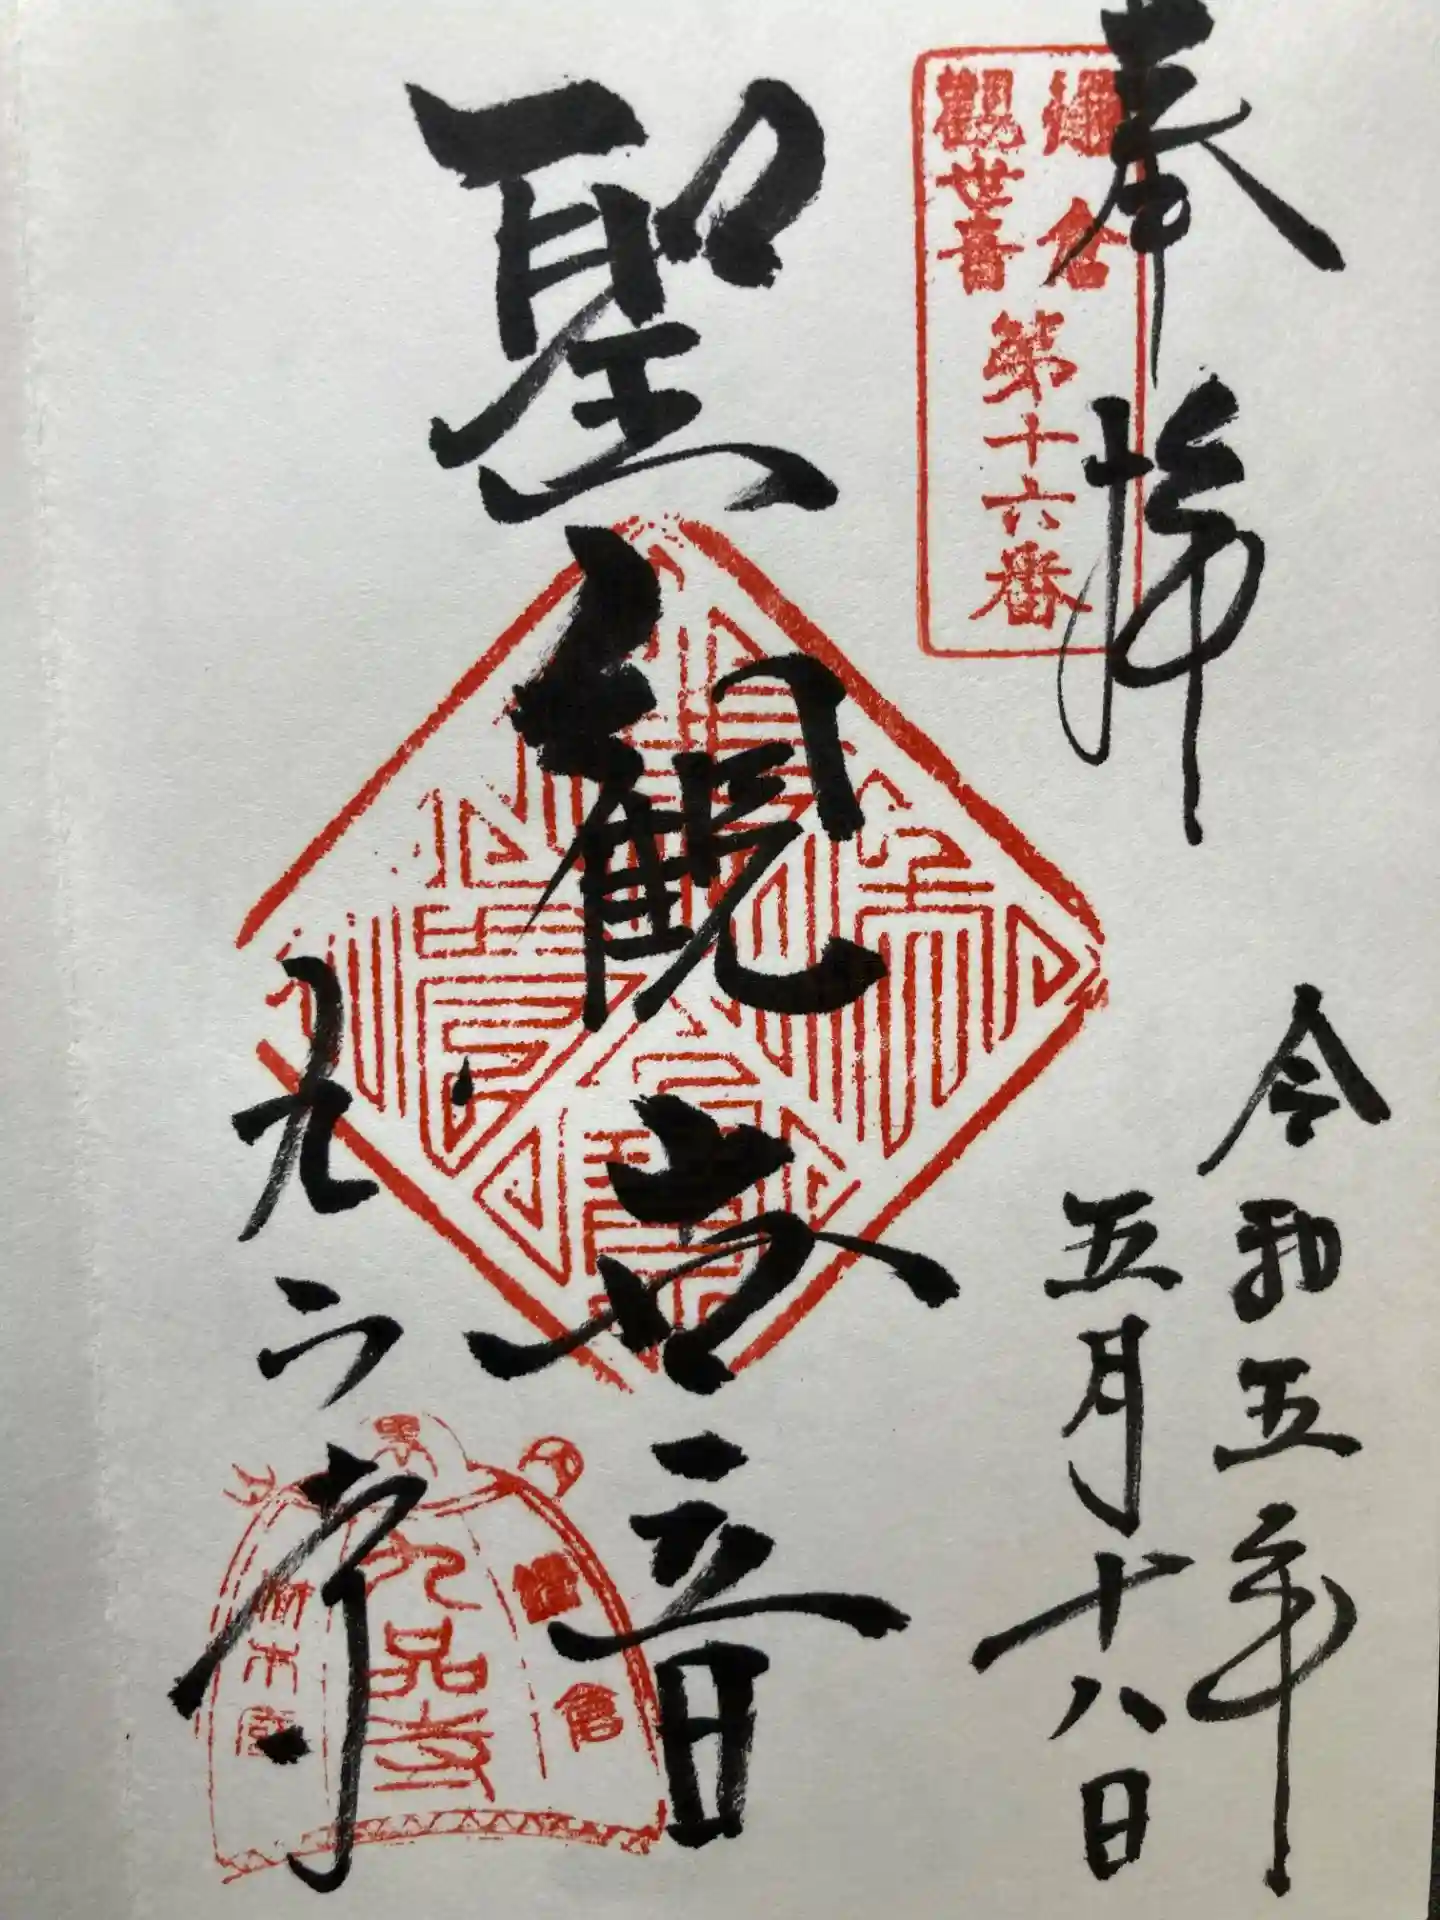 奉拝
鎌倉
観世音
第十六番
令和五年
五月十八日
聖観世音
九品寺
鎌倉
九品寺
材木座